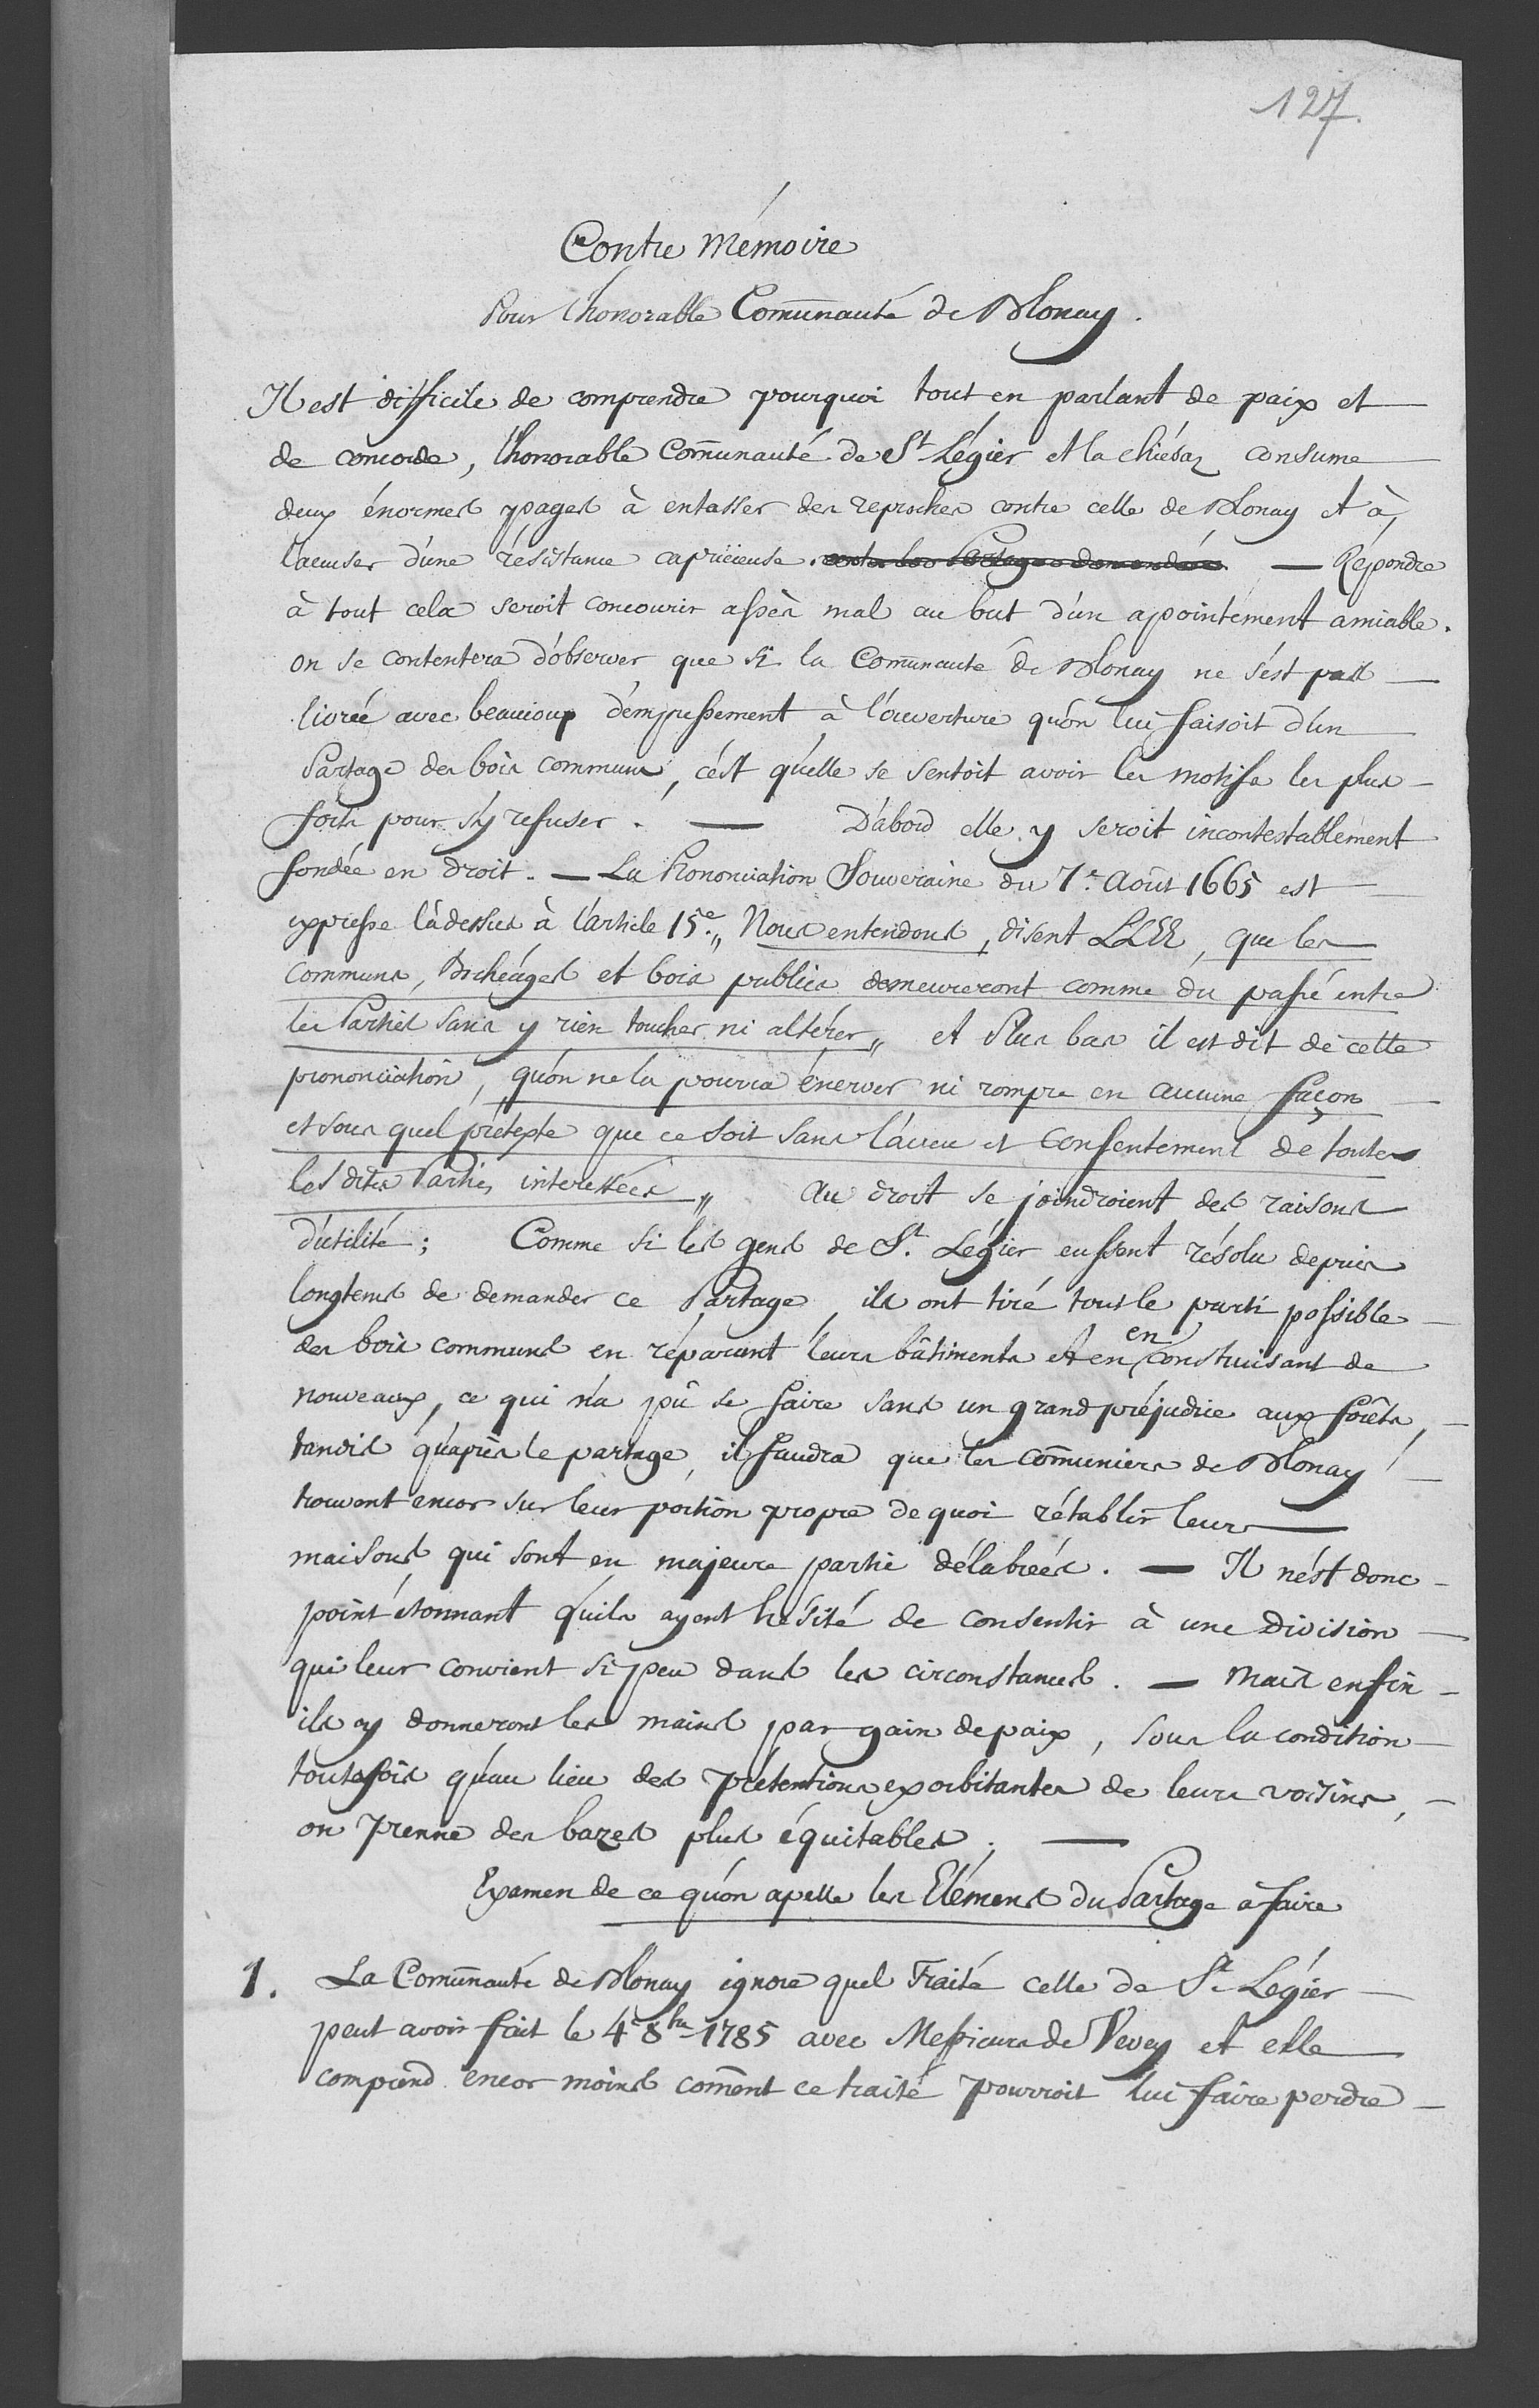 127.
Contre Mémoire
Pour l'honorable Com̄unauté de Blonay.
Il est difficile de comprendre pourquoi tout en parlant de paix et
de concorde, l'honorable Com̄unauté de St Légier et la Chiésaz consume
deux énormes pages à entasser des reproches contre celle de Blonay et à
l'acuser d'une résistance capricieuse. — Répondre
à tout cela seroit concourir assès mal au but d'un apointement amiable.
on se contentera d'observer que si la Com̄unauté de Blonay ne s'est pas
livrée avec beaucoup d'empressement à l'ouverture qu'on lui faisoit d'un
Partage des bois communs, c'est qu'elle se sentoit avoir les motifs les plus
forts pour s'y refuser. — D'abord elle y seroit incontestablement
fondée en droit. — La Prononciation Souveraine du 7e Août 1665 est
expresse là dessus à l'article 15e „ Nous entendons, disent LLEE, que les
communs, Bochéages et bois publics demeureront comme du passé entre
les Parties sans y rien toucher ni altérer „ et Plus bas il est dit de cette
prononciation, qu'on ne la pourra énerver ni rompre en aucune façon
et sous quel prétexte que ce soit sans l'aveu et consentement de toutes
les dites Parties interessées „ Au droit se joindroient des raisons
d'utilité; Comme si les gens de St. Légier eussent résolu depuis
longtems de demander ce Partage, ils ont tiré tout le parti possible
des bois communs en réparant leurs bâtiments et en en construisant de
nouveaux, ce qui n'a pû se faire sans un grand préjudice aux forêts,
tandis qu'après le partage, il faudra que les com̄uniers de Blonay
trouvent encor sur leur portion propre de quoi rétablir leurs
maisons qui sont en majeure partie délabrées. — Il n'est donc
point étonnant qu'ils ayent hésité de consentir à une Division
qui leur convient si peu dans les circonstances. — Mais enfin
ils y donneront les mains par gain de paix, sous la condition
toutefois qu'au lieu des prétentions exorbitantes de leurs voisins,
on prenne des bazes plus équitables. —
Examen de ce qu'on apelle les Elémens du Partage à faire
1. La Com̄unauté de Blonay ignore quel Traité celle de St Légier
peut avoir fait le 4e 8bre 1785 avec Messieurs de Vevey et elle
comprend encor moins com̄ent ce traité pourroit lui faire perdre